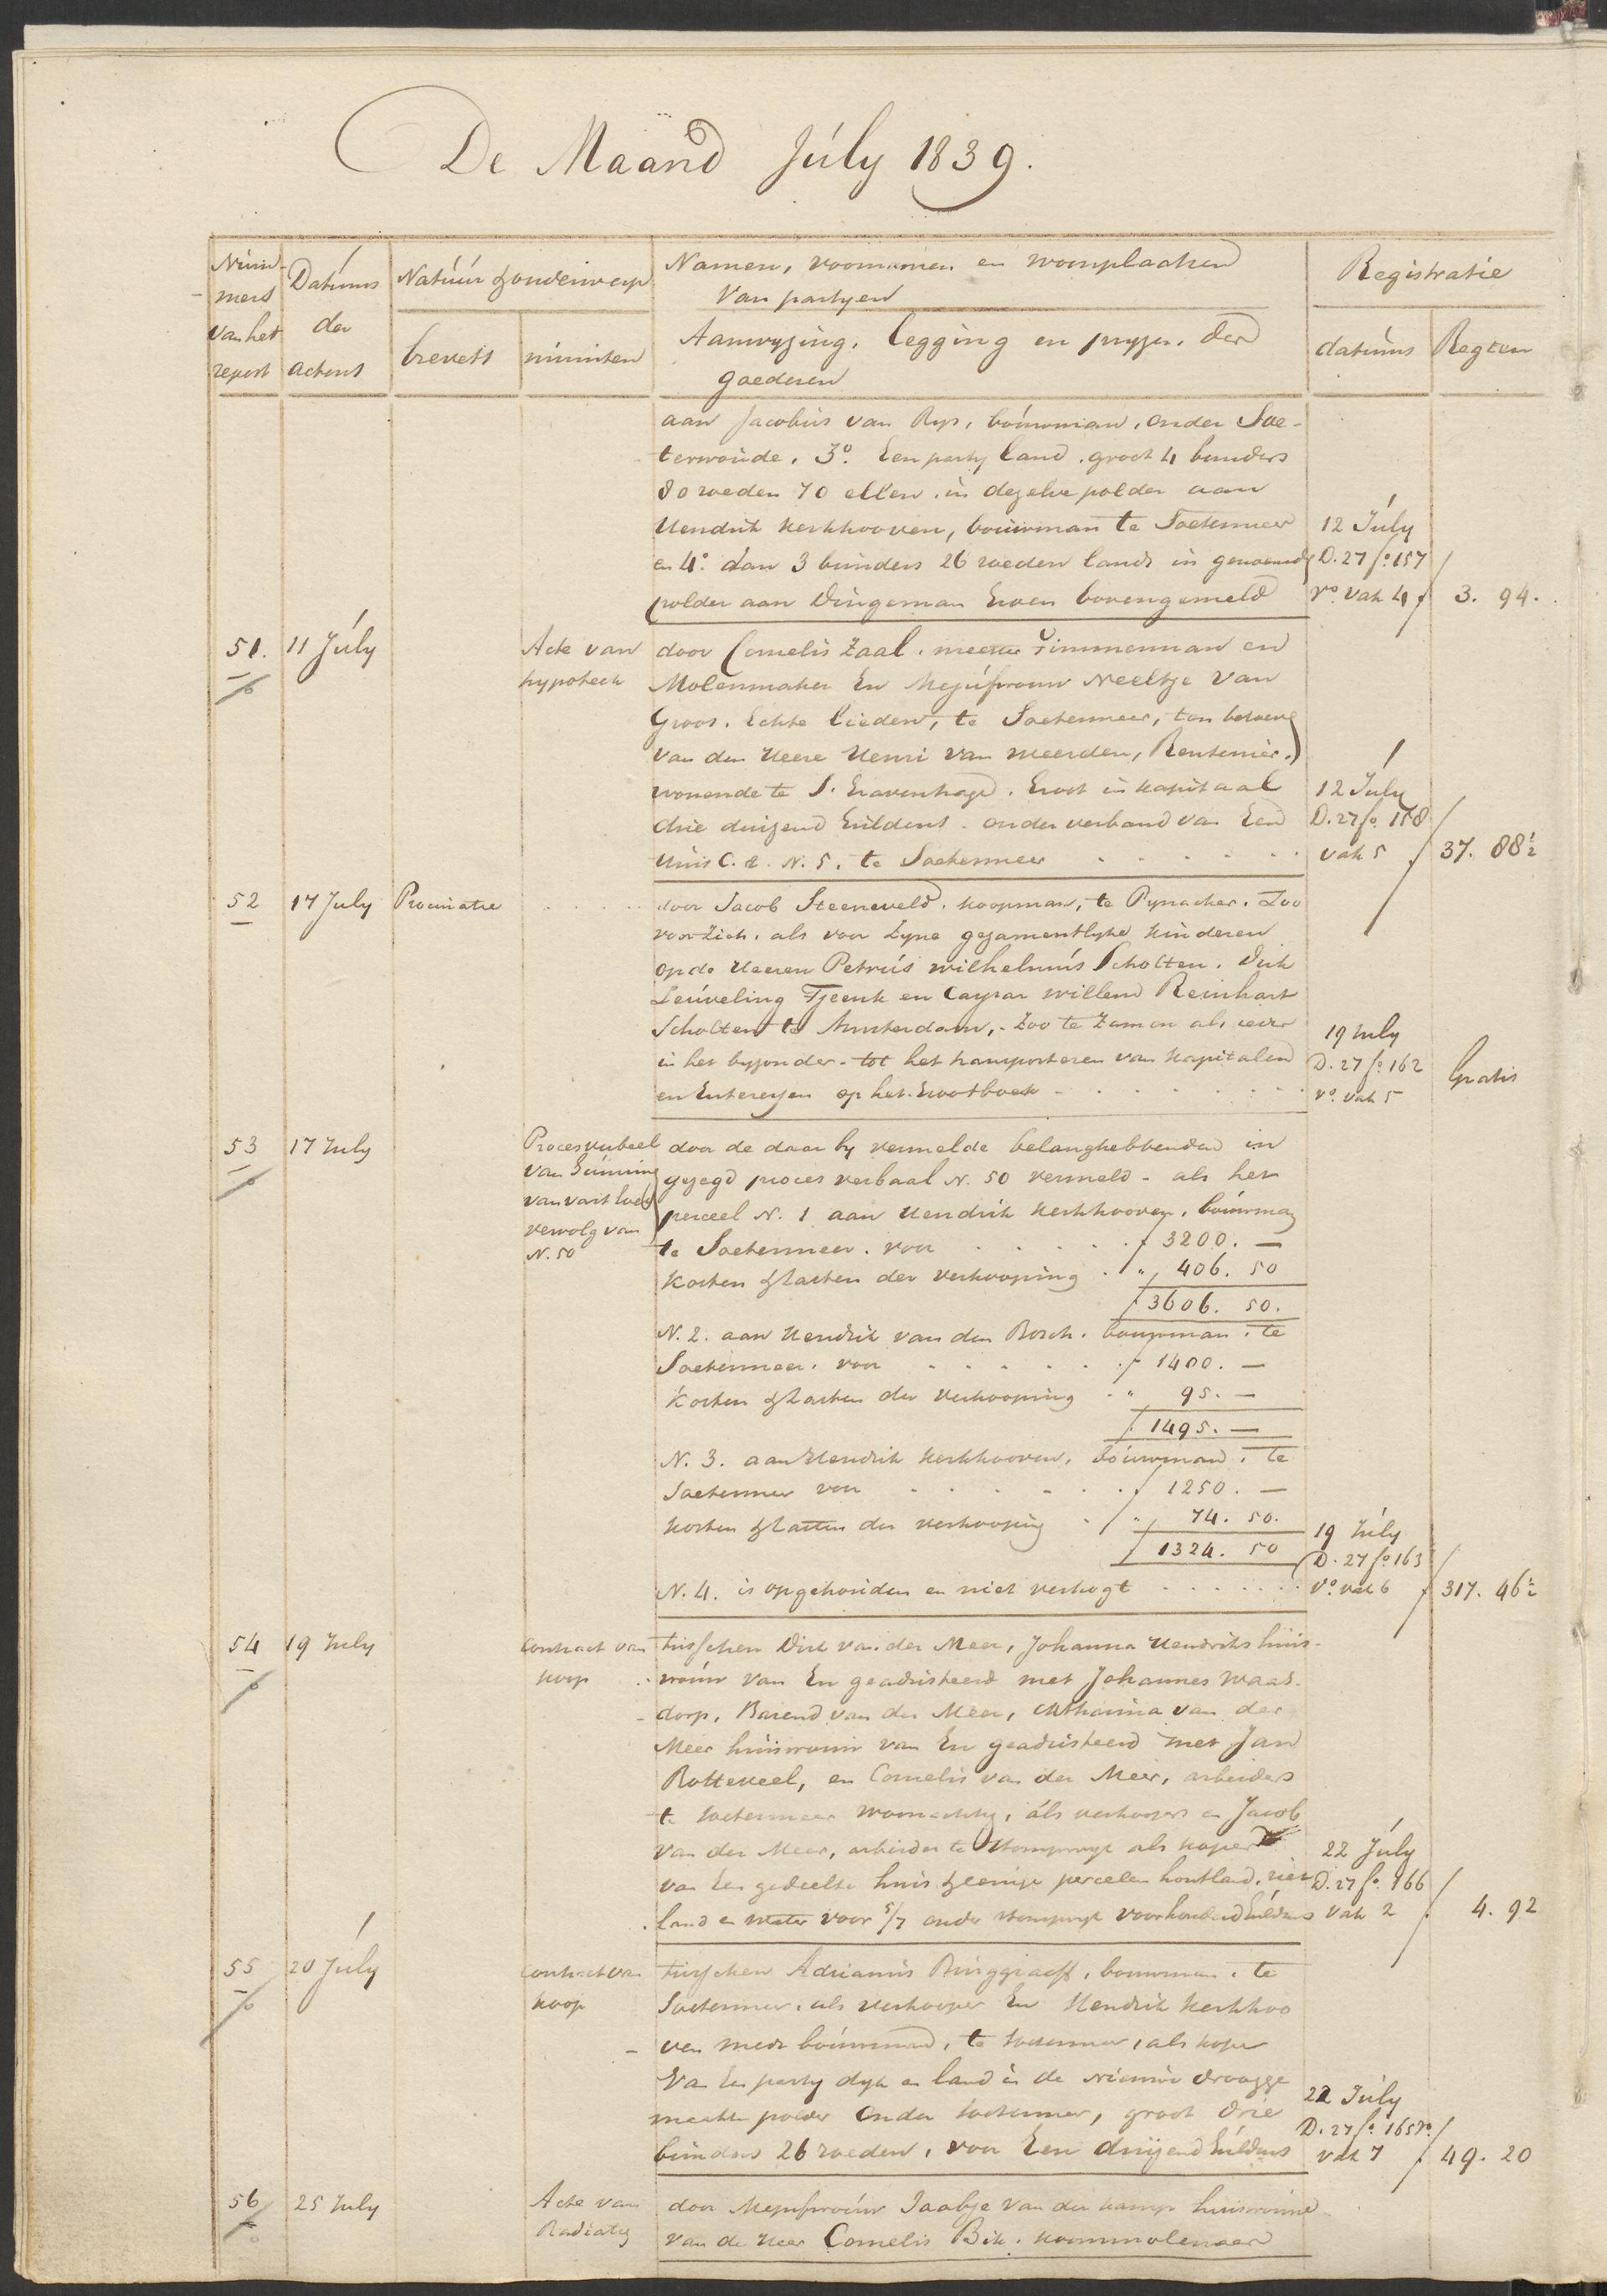 De Maand Júly 1839.
Núm-
mers
van het
repert
Datúms
der
actens
Natúúr & onderwerp
brevets
minúten
Namen, voornamen en woonplaatsen
van partyen
Aanwyzing, legging en pryzen der
goederen
Registratie
datúms
Regten
aan Jacobús van Ryn, boúwman, onder Soe-
terwoúde, 3º. Een party land, groot 4 bunders
80 roeden 70 ellen, in dezelve polder aan
Hendrik Kerkhooven, boúwman te Soetermeer
en 4º. dan 3 bunders 26 roeden lands in genoemde
polder aan Dingeman bovengemeld
12 Júly
D. 27 fº. 157
vº. vak 4
f 3. 94.
51.
11 Júly
Acte van
hypoteek
door Cornelis Zaal, meester Timmerman en
Molenmaker En Mejúfvrouw Neeltje van
Groos, Echte lieden, te Soetermeer, ten behoeve
van den Heere Henri van Meerden, Rentenier,
wonende te S. Gravenhage, Groot in kapitaal
drie duizend Guldens, onder verband van Een
Húis C. 2. N. 5. te Soetermeer
12 Júly
D. 27 fº. 158
vak 5
f 37. 88½
52
17 July
Procuratie
door Jacob Steeneveld, koopman, te Pynacker, Zoo
voor Zich, als voor Zyne gezamentlyke kinderen
op de Heeren Petrús Wilhelmús Scholten, Dirk
Leúveling Tjeenk en Caspar Willem Reinhart
Scholten te Amsterdam, Zoo te Zamen als ieder
in het byzonder tot het transporteren van kapitalen
en Interessen op het Grootboek
19 July
D. 27 fº. 162
vº. vak 5
Gratis
53
17 July
Procesverbaal
van Gúnning
van vast goed
vervolg van
N. 50
door de daar by vermelde belanghebbenden in
gezegd proces verbaal N. 50 vermeld - als het
perceel N. 1 aan Hendrik Kerkhooven, boúwman
te Soetermeer, voor f 3200. —
Kosten & lasten der verkooping " 406. 50
f 3606. 50.
N. 2. aan Hendrik van den Bosch, bouwman, te
Soetermeer, voor f 1400. —
Kosten & lasten der verkooping " 95. —
f 1495. —
N. 3. aan Hendrik Kerkhooven, boúwman, te
Soetermeer voor f 1250. —
Kosten & lasten der verkooping " 74. 50.
f 1324. 50
N. 4. is opgehouden en niet verkogt
19 Júly
D. 27 fº 163
vº. vak 6
f 317. 46½
54
19 July
Contract van
koop
tússchen Dirk van der Meer, Johanna Hendriks húis-
vroúw van En geadsisteerd met Johannes Waas-
dorp, Barend van der Meer, Catharina van der
Meer húisvrouw van En geadsisteerd met Jan
Rotteveel, en Cornelis van der Meer, arbeiders
te Soetermeer woonachtig, als verkoopers en Jacob
van der Meer, arbeider te Stompwyk als koper
van Een gedeelte huis & eenige percelen houtland, riet
land en water voor 5/7 onder Stompwyk voor honderd Gúldens
22 Júly
D. 27 fº. 166
vak 2
f 4. 92
55
20 Júly
Contract van
koop
tússchen Adrianús Búrggraaff, bouwman, te
Soetermeer, als verkooper En Hendrik Kerkhoo
ven mede boúwman, te Soetermeer, als koper
Van Een party dyk en land in de Nieúwe drooge
maakte polder onder Soetermeer, groot drie
búnders 26 roeden, voor Een duizend Gúldens
22 Júly
D. 27 fº. 165 vº.
vak 7
f 49. 20
56
25 July
Acte van
Radiatie
door Mejufvroúw Jaabje van der Kamp húisvroúw
van de Heer Cornelis Bik, koornmolenaar